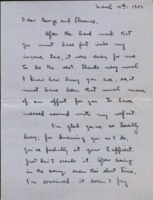 March 10th, 1943
Dear George and Florence,
After the hard work that
you must have put into my
income tax, it was easy for me
to do the rest. Thanks very much.
I know how busy you are, so it
must have been that much more
of an effort for you to have
mixed around with my effort.
I'm glad you're so busily
busy, for knowing you as I do,
you're probably at your happiest.
Just don't overdo it. After being
in the army, even this short time,
I'm convinced it doesn't pay